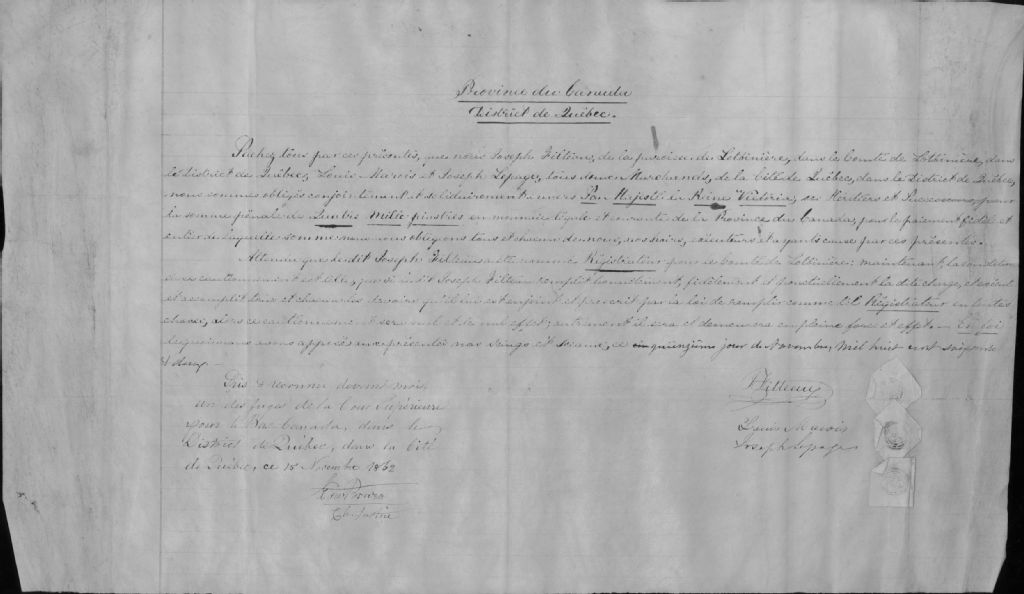 Province du Canada
District de Québec.
Sachez tous par ces présentes, que nous Joseph Filteau, de la paroisse de Lotbinière, dans le Comté de Lotbinière, dans
le District de Québec, Louis Marois et Joseph Lepage, tous deux Marchands, de la Cité de Québec, dans le District de Québec,
nous sommes obligés conjointement et solidairement envers Sa Majesté la Reine Victoria, ses Héritiers et Successeurs, pour
la somme pénale de Mille piastres en monnaie légale et courante de la Province du Canada, pour le paiement fidèle et
entier de laquelle somme nous nous obligeons tous et chacun de nous, nos hoirs, exécuteurs et ayants cause par ces présentes.
Attendu que le dit Joseph Filteau a été nommé Régistrateur pour le Comté de Lotbinière: maintenant, la condition
de ce cautionnement est telle, que si le dit Joseph Filteau remplit honnêtement, fidèlement et ponctuellement la dite charge, et
et accomplit tous et chacun les devoirs qu'il lui est enjoint et prescrit par la loi de remplir comme tel Régistrateur en toutes
choses, alors ce cautionnement sera nul et de nul effet; autrement il sera et demeurera en pleine force et effet. — En foi
de quoi nous avons apposés aux présentes nos seings et sceaux, ce quinzième jour de Novembre, Mil huit cent soixante
et deux. —
Pris & reconnu devant moi,
un des juges de la Cour Supérieure
pour le Bas Canada, dans le
District de Québec, dans la Cité
de Québec, ce 15 Novembre 1862
Filteau
Louis Marois
Joseph Lepage